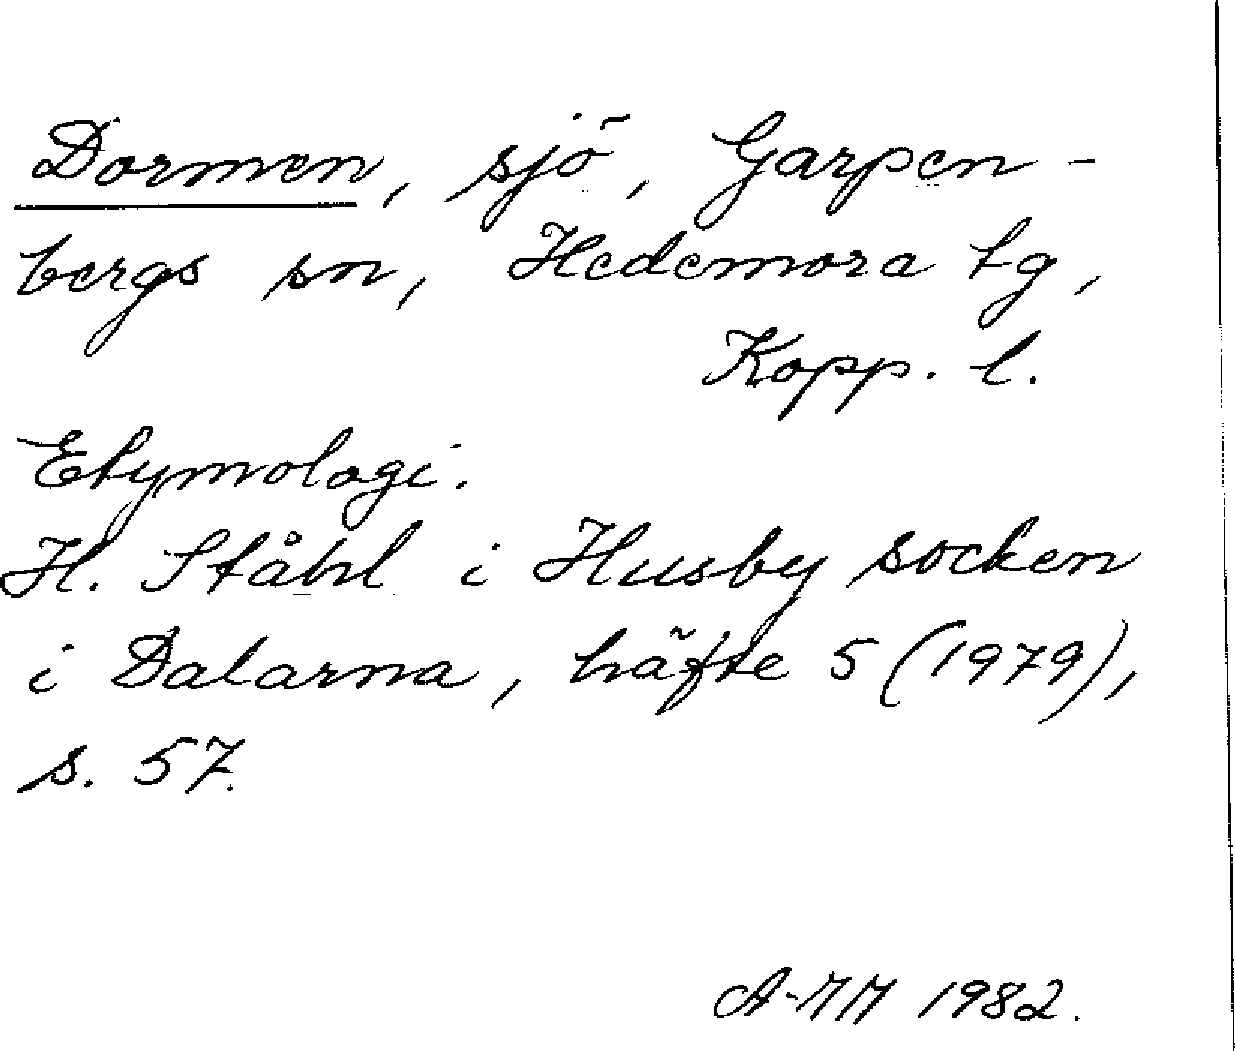 Dormen, sjö, Garpen-
bergs sn, Hedemora tg,
Kopp. l.
Etymologi.
H. Ståhl i Husby socken
i Dalarna, häfte 5 (1979),
s. 57.
A-MM 1982.